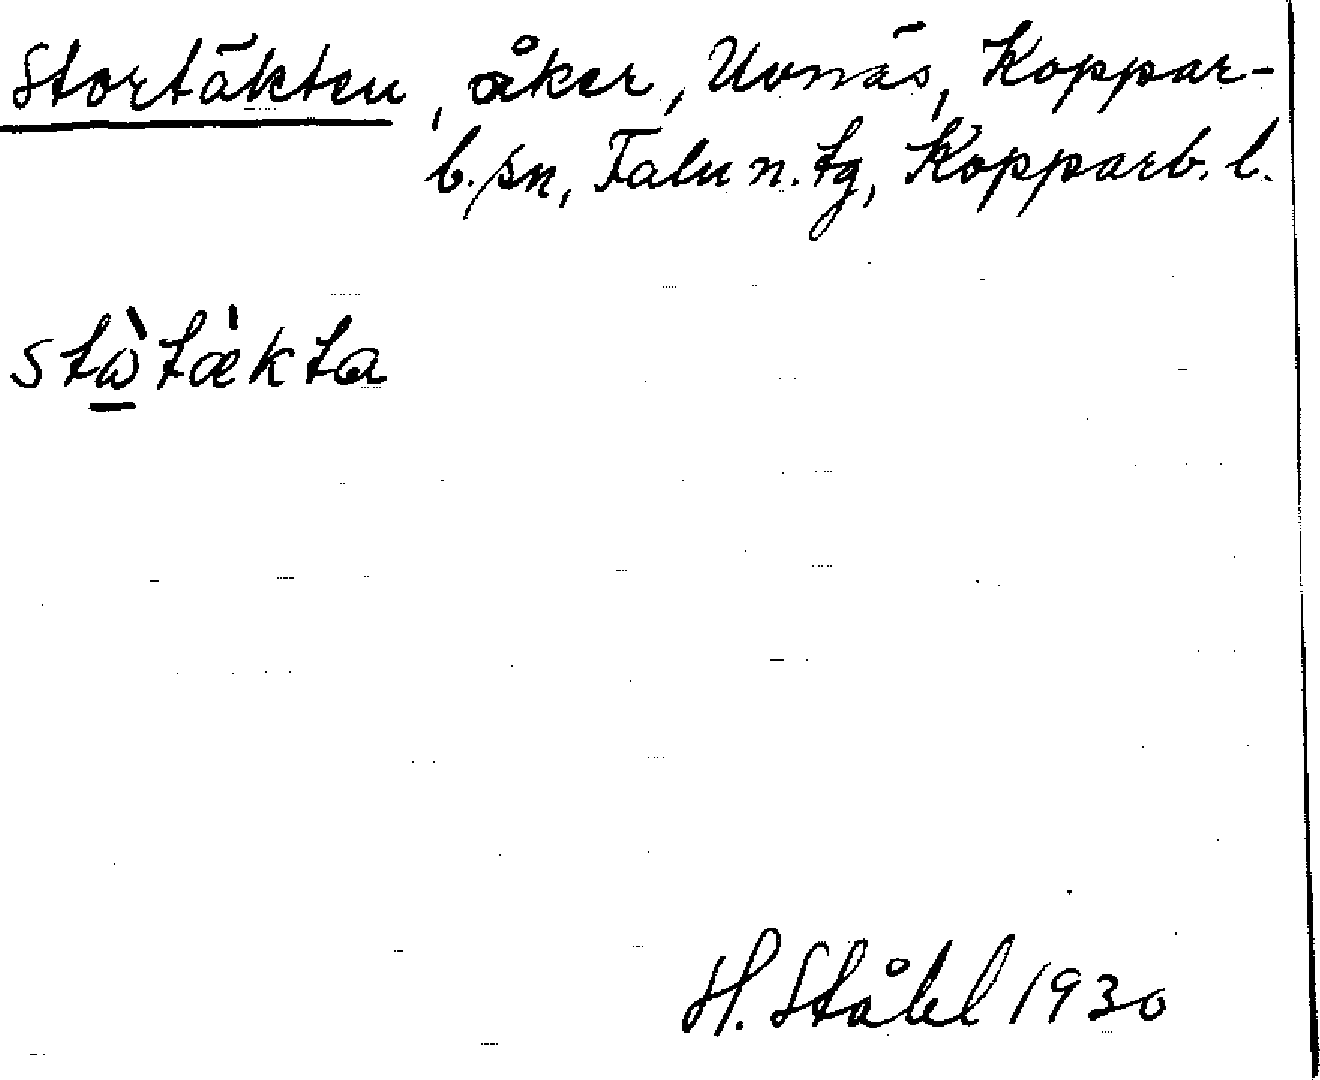 Stortäkten, åker, Uvnäs, Koppar-
b. sn, Falu n. tg, Kopparb. l.
stɷ̀tækta
H. Ståhl 1930